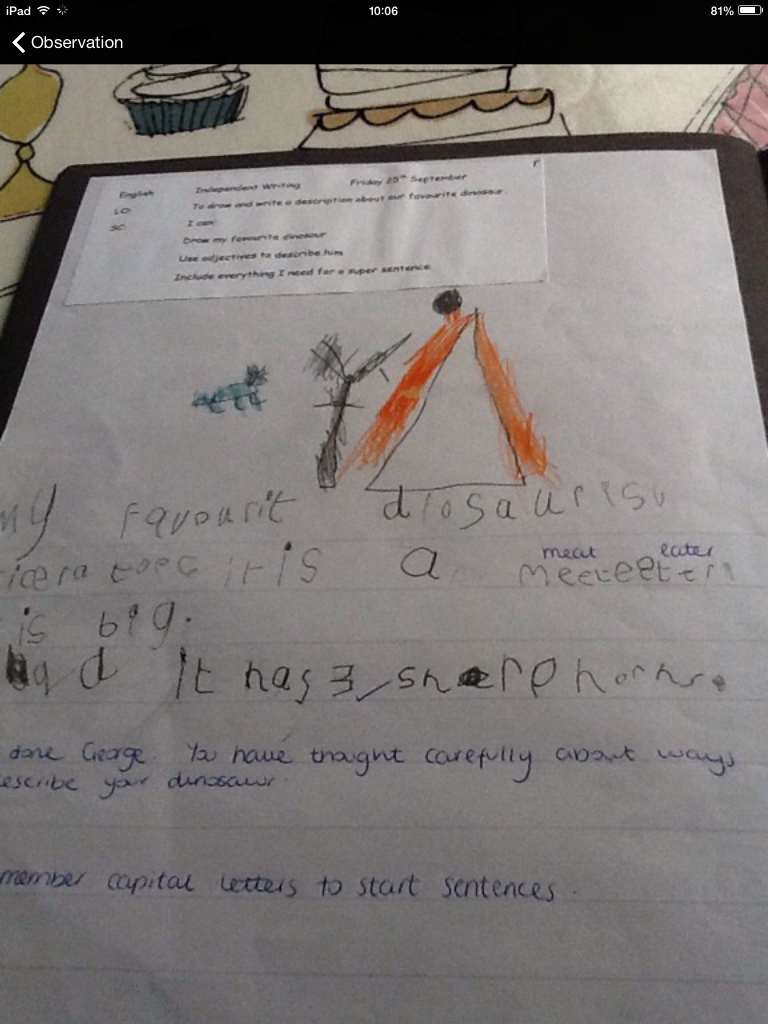 iPad 10:06 81%
Observation
English Independent Writing Friday 25th September
LO: To draw and write a description about our favourite dinosaur
SC: I can:
Draw my favourite dinosaur
Use adjectives to describe him
Include everything I need for a super sentence
my Favourit diosaur is
meat eater
iceratops it is a meeteeter
is big.
It has 3 sherp horns.
done George. You have thought carefully about ways
escribe your dinosaur.
member capital letters to start sentences.